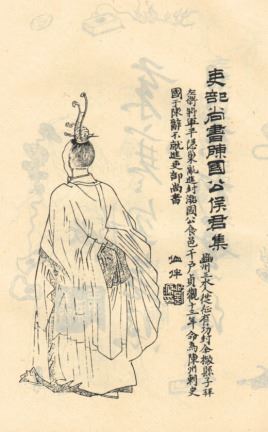 吏部尚書陳國公侯君集
豳州三水從征有功封全椒縣子拜
左衛將軍平隱巢亂進封潞國公食邑千戶貞觀十三年命為陳州刺史
國于陳辭不就進吏部尚書